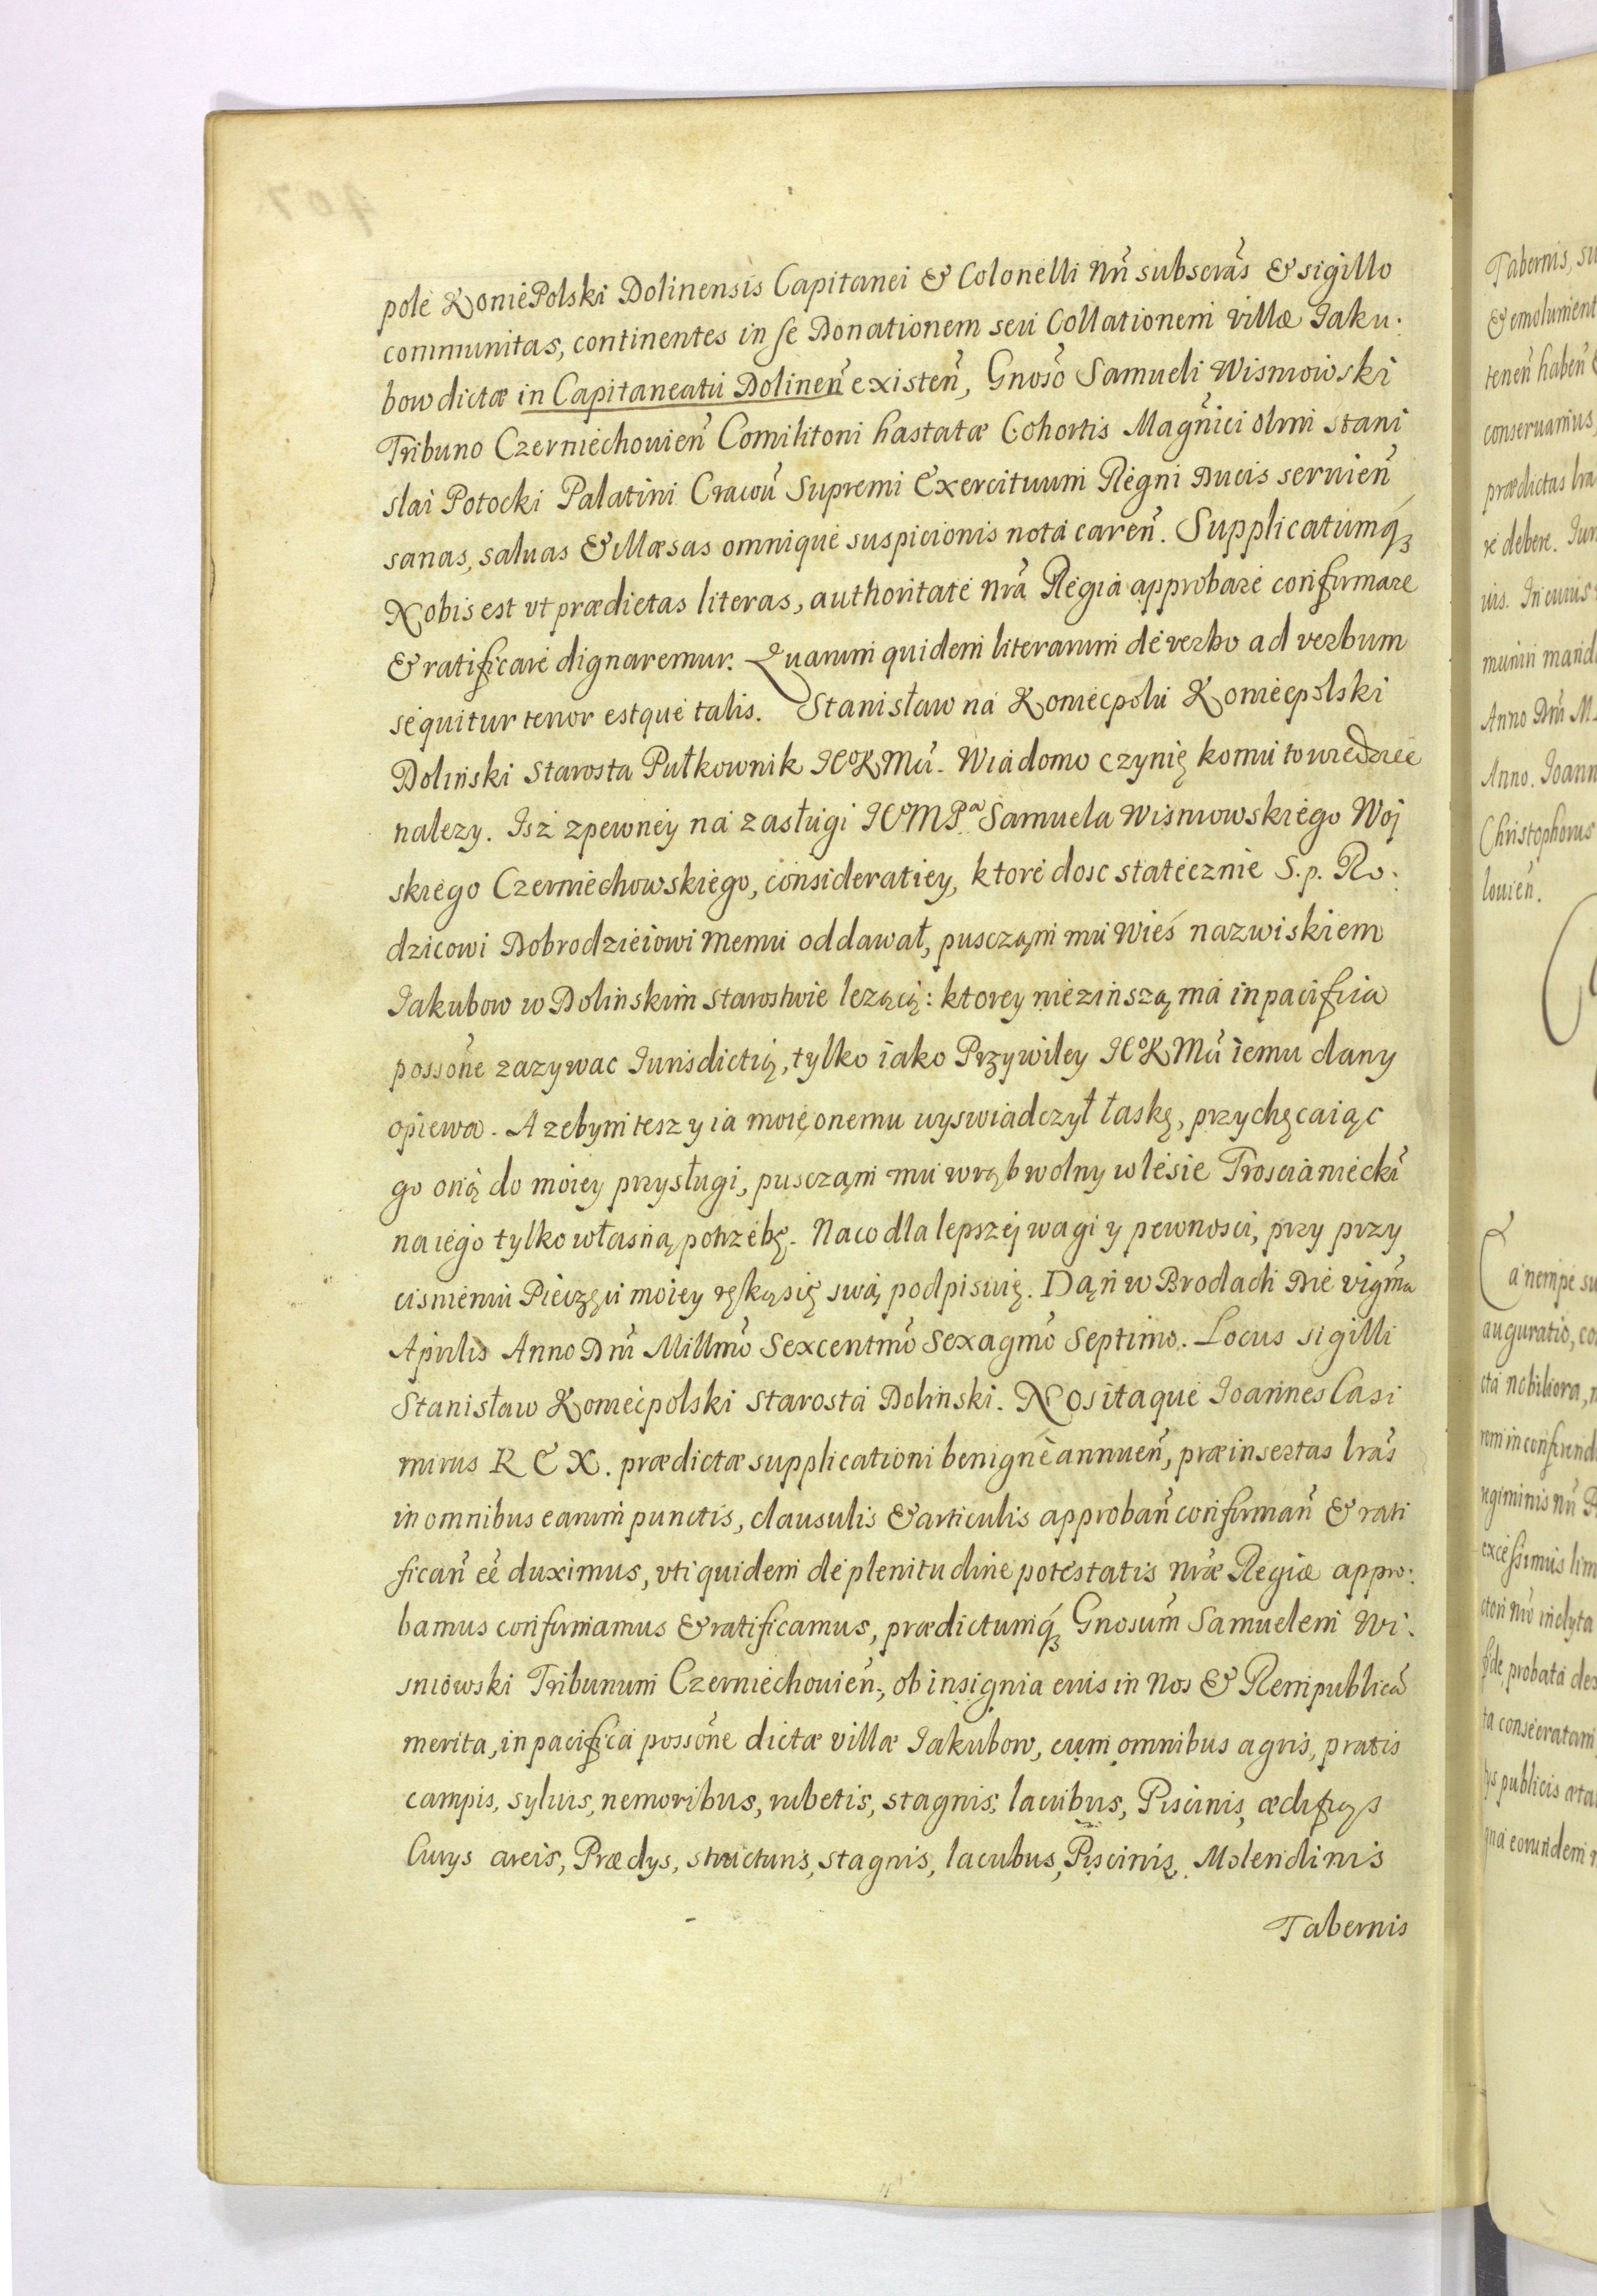 pole KoniePolski Dolinensis Capitanei & Colonelli Nrī subscrās & sigillo
communitas, continentes in se Donationem seu Collationem villæ Jaku.
bow dictæ in Capitaneatu Dolineñ existeñ, Gnoso Samueli Wisniowski
Tribuno Czerniechouieñ Comilitoni hastatæ Cohortis Magnici olim Stani
slai Potocki Palatini Cracou Supremi Exercituum Regni Ducis seruieñ
sanas, saluas & illæsas omnique suspicionis nota careñ. Supplicatumq₃
Nobis est vt prædictas literas, authoritate nrā Regia approbare confirmare
& ratificare dignaremur. Quarum quidem literarum de verbo ad verbum
sequitur tenor estque talis. Stanisław na Koniecpolu Koniecpolski
Dolinski Starosta Pułkownik JCoKMci. Wiadomo czynię komu to wiedziec
nalezy. Isz zpewney na zasługi JCoMPa Samuela Wisniowskiego Woj
skiego Czerniechowskiego, consideratiey, ktore dosc statecznie S.p. Ro.
dzicowi Dobrodzieiowi memu oddawał, pusczam mu Wieś nazwiskiem
Jakubow w Dolinskim Starostwie lezącą: ktorey nieżinszą ma in pacifica
possone zazywac Iurisdictią, tylko iako Przywiley JCoKMci iemu dany
opiewa. A zebym tesz y ia moię onemu wyswiadczył łaskę, przychęcaiąc
go onā do moiey przysługi, pusczam mu wrąb wolny w lesie Trosciānieckī
na iego tylko własną potrzebę. Na co dla lepszej wagi y pewnosci, przy przy
cisnieniu Pieczęci moiey ręką się swą podpisuię. Dąn w Brodach Die vigma
Aprilis Anno Dnī Millmō Sexcentmō Sexagmō Septimo. Locus sigilli
Stanisław Koniecpolski Starosta Dolinski. Nos itaque Joannes Casi
mirus REX. prædictæ supplicationi benigne annueñ, præinsertas lrās
in omnibus earum punctis, clausulis & articulis approbañ confirmañ & rati
ficañ eē duximus, vti quidem de plenitudine potestatis nræ Regiæ appro.
bamus confirmamus & ratificamus, prædictumq₃ Gnosum Samuelem Wi.
sniowski Tribunum Czerniechouieñ, ob insignia euis in Nos & Rempublicā
merita, in pacifica possone dictæ villæ Jakubow, cum omnibus agris, pratis
campis, syluis, nemoribus, rubetis, stagnis, lacubus, Piscinis, ædificys
Curys areis, Prædys, structuris, stagnis, lacubus, Piscinis, Molendinis
Tabernis
Tabernis, su
& emolument
teneñ habeñ &
conseruamus,
prædictas lra
re debere. Jur
uis. In cuius
munin mand
Anno Dnī M
Anno. Joann
Christophorus
louieñ.
a nempe su
auguratio, co
cta nobiliora, n
rem in confirmd
regiminis nrī
excessimus lim
ctori nrō inclyta
fide, probata des
ta consecratam
ys publicis
gna eorundem